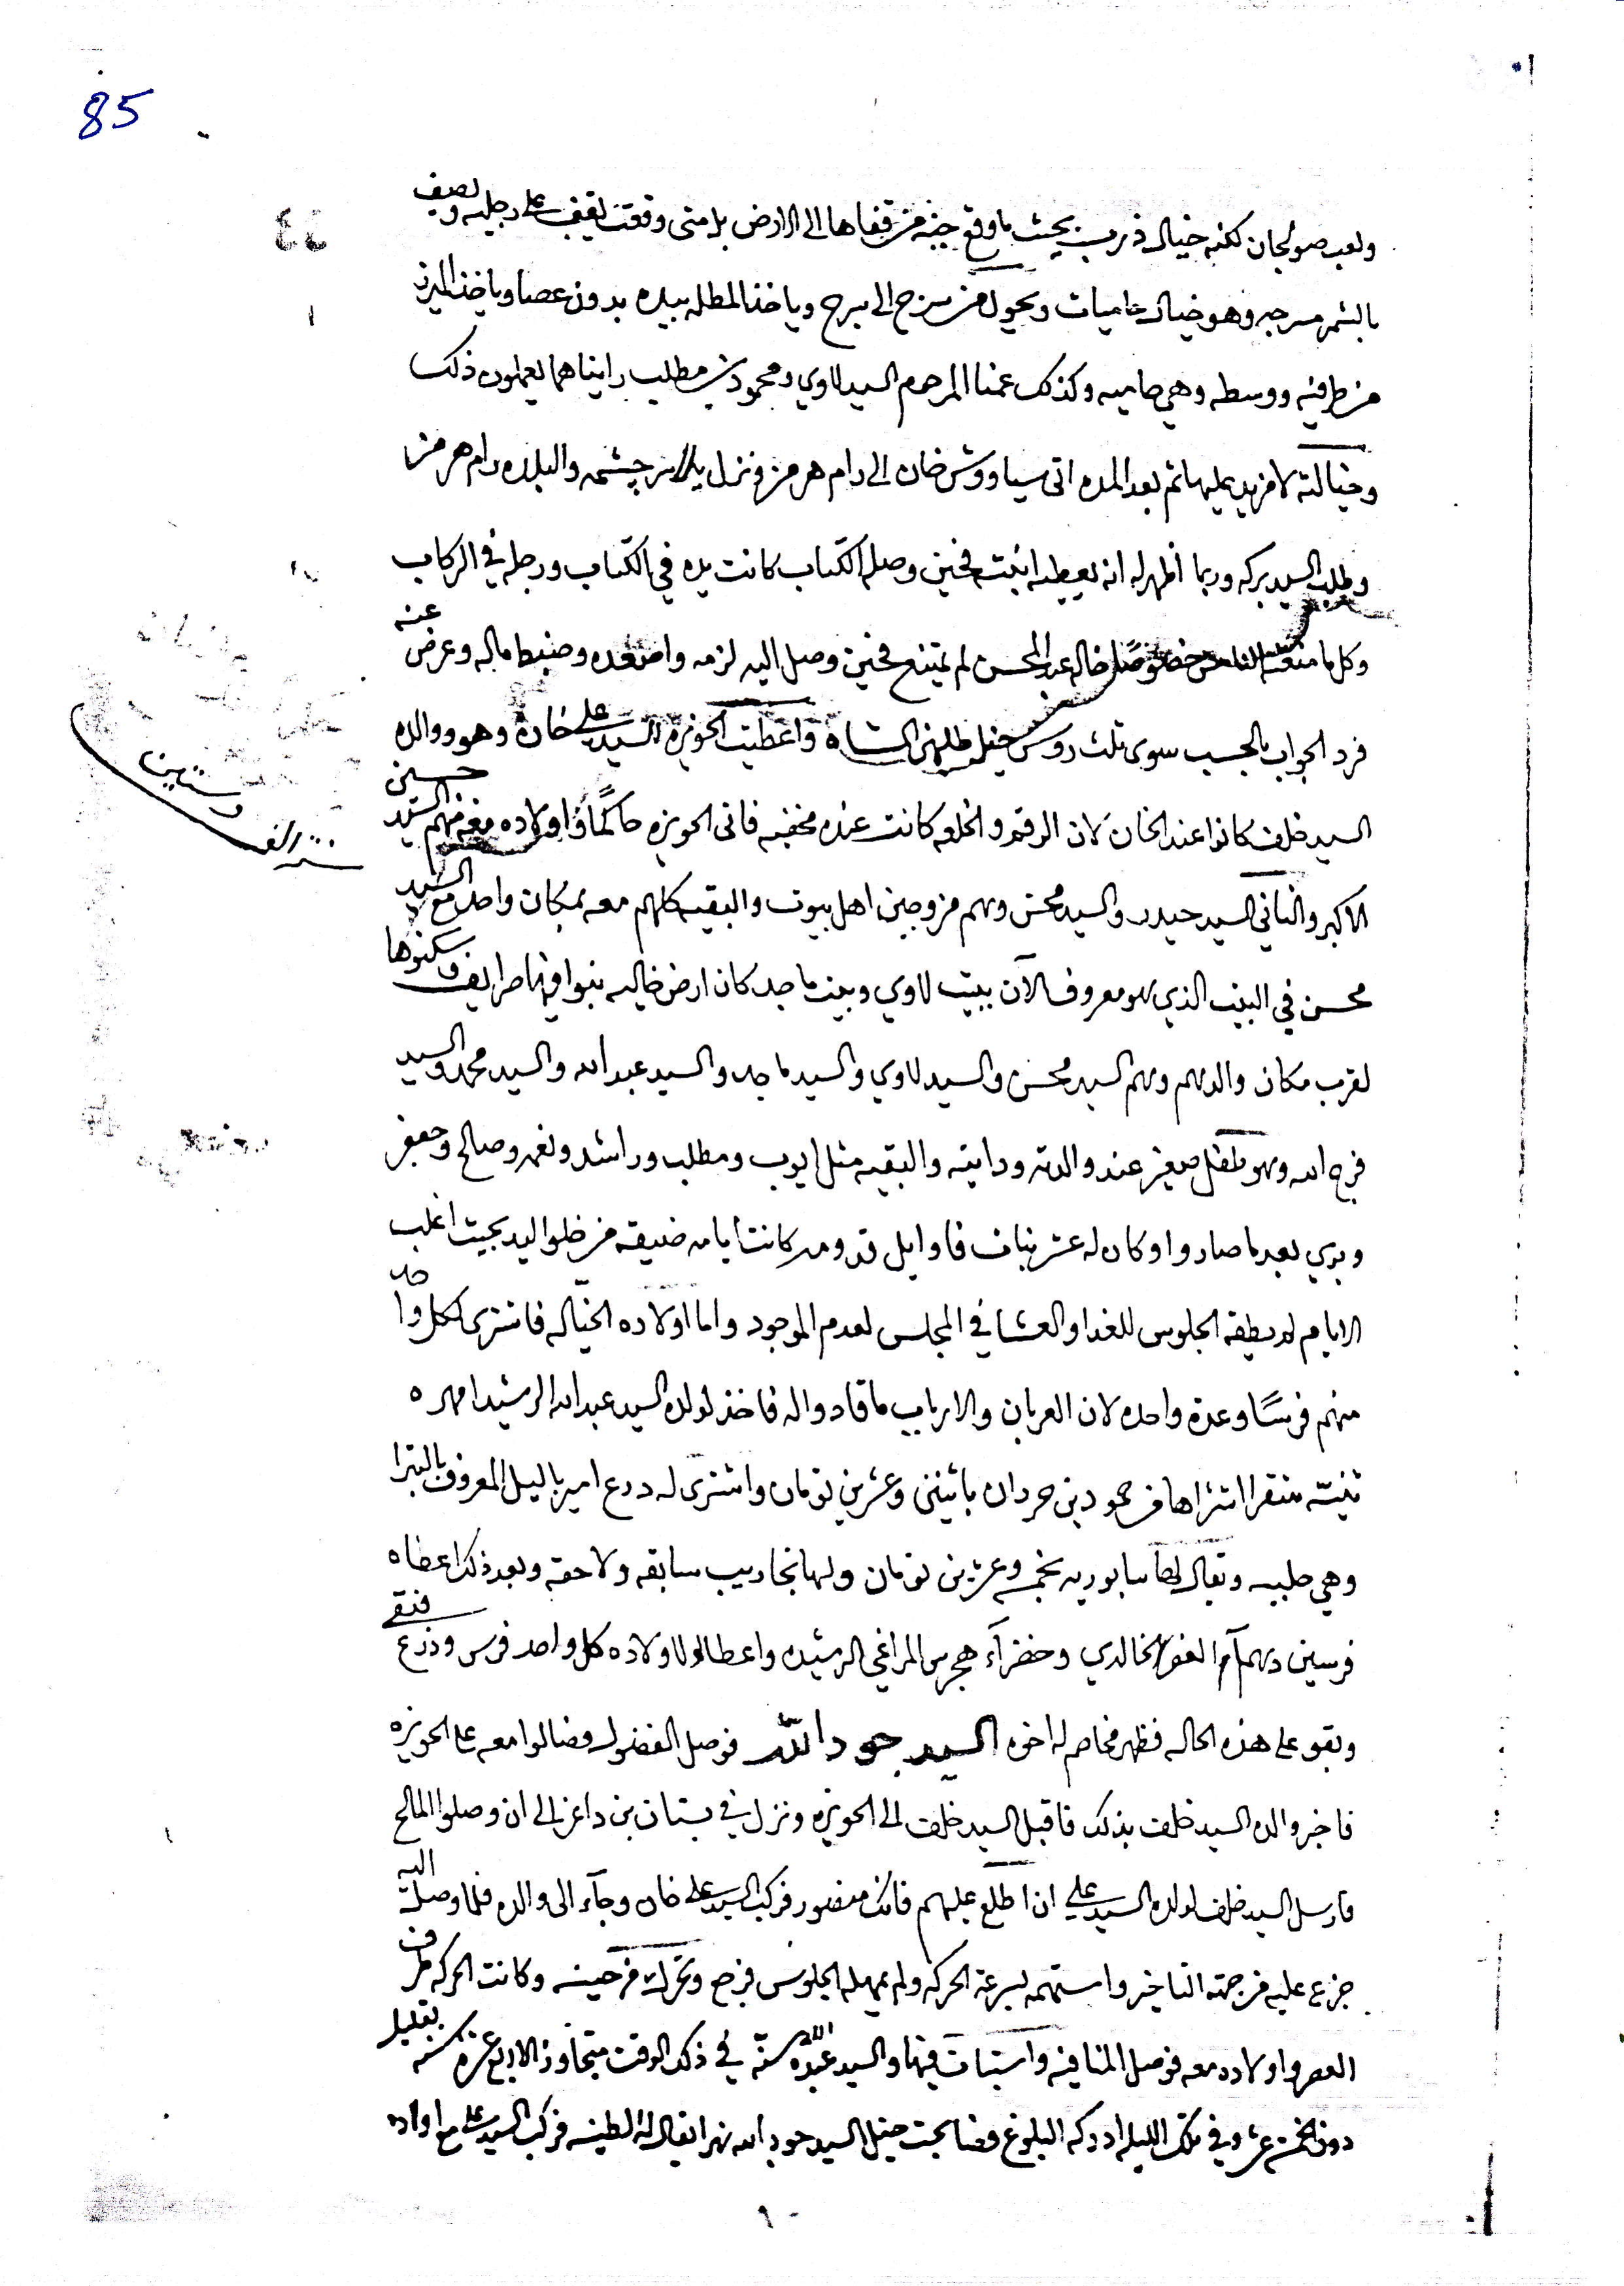 85
ولعب صولجان لكنه خيال ذريب بحيث ما وقع جنه من قفاها الى الارض بل متى وقعت يقيف على رجليه ويصيف
بالشمر مسرجه وهو خيال حاميات ويحول من سرج الى سرج وياخذ المطله بيده بدون عصا وياخذ الميزد
من طرفيه ووسطه وهي حاميه وكذلك عمنا المرحوم السيد لاوي ومحمود بن مطلب رايناهما يعملون ذلك
وخيالته لا مزيد عليها ثم بعد المده اتى سياووش خان الى رام هرمز ونزل بلاس چشمه والبلده رام هرمز
وطلب السيد بركه وربما اظهر له انه يعطيه ابنته فحين وصله الكتاب كانت يده في الكتاب ورجله في الركاب
وكل ما منعته الناس خصوصًا خاله عبد المحسن لم يمتنع فحين وصل اليه لزمه واصفده وضبط ماله وعرض عنه
فرد الجواب بالحبس سوى ثلث روس خيل طلبهن الشاه واعطيت الحويزه السيد علي خان وهو ووالده
السيد خلف كانوا عند الخان لان الرقم والخلعه كانت عنده مخفيه فاتى الحويزه حاكمًا واولاده معه منهم السيد حسين
الاكبر والثاني السيد حيدر والسيد محسن وهم مزوجين اهل بيوت والبقيه كلهم معه بمكان واحد مع السيد
محسن في البيت الذي هو معروف الآن ببيت لاوي وبيت ماجد كان ارض خاليه بنوا فيها صرايف وسكنوها
لقرب مكان والدهم وهم السيد محسن والسيد لاوي والسيد ماجد والسيد عبد الله والسيد محمد والسيد
فرج الله وهو طفل صغير عند والدته ودايته والبقيه مثل ايوب ومطلب وراشد ونعمه وصالح وجعفر
وبدي بعد ما صاروا وكان له عشر بنات فاوايل قدومه كانت ايامه ضيقه من خلو اليد بحيث اغلب
الايام لم يطيقه الجلوس للغدا والعشا في المجلس لعدم الموجود واما اولاده الخيّاله فاشترى لكل واحد
منهم فرسًا وعدة واحده لان العربان والارباب ما قادوا له فاخذ لولده السيد عبد الله الرشيدا مهره
ثنيّه شقرا اشتراها من حمود بن حردان باثنين وعشرين تومان واشترى له درع امير باليل المعروف بالتبرا
وهي حلبيه ويقال لها سابوريه بخمسه وعشرين تومان ولها تجاريب سابقه ولاحقه وبعد ذلك اعطاه
فرسين دهمآم العفر الخالدي وخضرآء هجرس المراغي الرشيده واعطا لاولاده كل واحد فرس ودرع فنقي
وبقو على هذه الحاله فظهر مخاصم له اخوه السيد جود الله فوصل الفضول وضالوا معه على الحويزه
فاخبر والده السيد خلف بذلك فاقبل السيد خلف الى الحويزه ونزل في بستان بن داغر الى ان وصلوا المالح
فارسل السيد خلف لولده السيد علي ان اطلع عليهم فانك منصور فركب السيد علي خان وجآء الى والده فلما وصل اليه
جزع عليه من جهة التاخير واستهمه لسرعة الحركه ولم يمهله الجلوس فرجع وتحرك من حينه وكانت الحركه طرف
العصر واولاده معه فوصل المنافيه واستبات فيها والسيد عبد الله سنّه في ذلك الوقت متجاوز الاربع عشره سنه بقليل
دون الخمسه عشر وفي تلك الليله ادركه البلوغ وصابحت خيل السيد جود الله نهرا يقال له الطينه فركب السيد علي مع اولاده